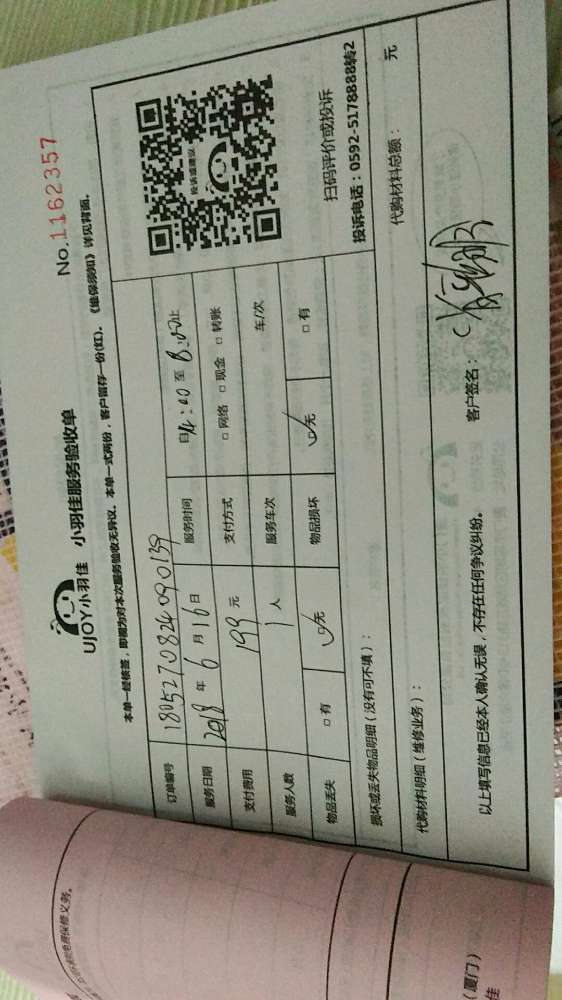 UJOY小羽佳 小羽佳服务验收单
No.1162357
本单一经核签，即视为对本次服务验收无异议。本单一式两份，客户留存一份(红)。《维保须知》详见背面。
订单编号 1805270824090139 服务时间 自14:00至8:00止
服务日期 2018年6月16日 支付方式 □网络 □现金 □转账
支付费用 199元 服务车次 车/次
服务人数 1人 物品损坏 ☑无 □有
物品丢失 □有 ☑无
投诉或建议
扫码评价或投诉
投诉电话：0592-5178888转2
损坏或丢失物品明细（没有可不填）：
代购材料明细（维修业务）： 代购材料总额： 元
以上填写信息已经本人确认无误，不存在任何争议纠纷。 客户签名：
免费保修义务。
（厦门）
佳